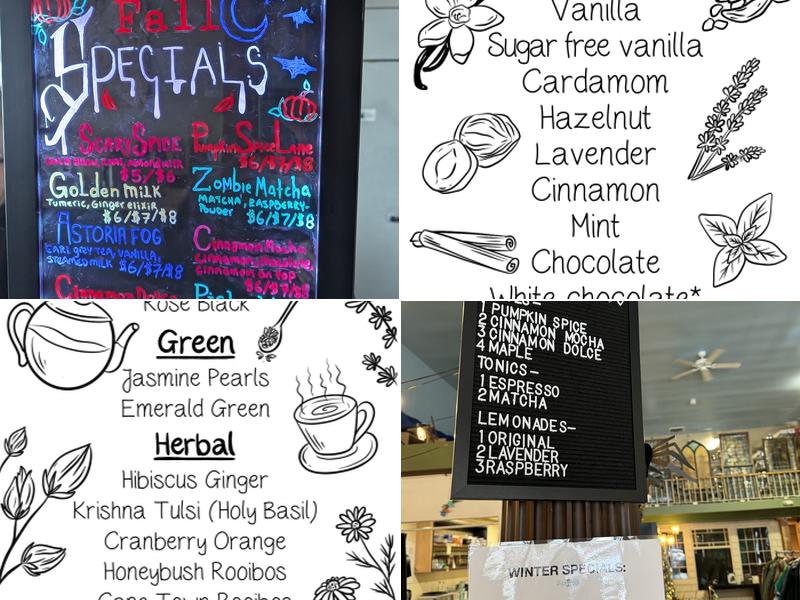 Fall
Specials
Scary Spice
$5/$6
Golden Milk
Turmeric, Ginger elixir
$6/$7/$8
Astoria Fog
Earl grey tea, vanilla,
steamed milk $6/$7/$8
Pumpkin Spice Lane
$6/$7/$8
Zombie Matcha
Matcha, Raspberry-
Powder $6/$7/$8
Cinnamon Mocha
Cinnamon, chocolate,
cinnamon on top
$6/$7/$8
Vanilla
Sugar free vanilla
Cardamom
Hazelnut
Lavender
Cinnamon
Mint
Chocolate
White chocolate*
Rose Black
Green
Jasmine Pearls
Emerald Green
Herbal
Hibiscus Ginger
Krishna Tulsi (Holy Basil)
Cranberry Orange
Honeybush Rooibos
Cape Town Rooibos
1 PUMPKIN SPICE
2 CINNAMON MOCHA
3 CINNAMON DOLCE
4 MAPLE
TONICS-
1 ESPRESSO
2 MATCHA
LEMONADES-
1 ORIGINAL
2 LAVENDER
3 RASPBERRY
WINTER SPECIALS: